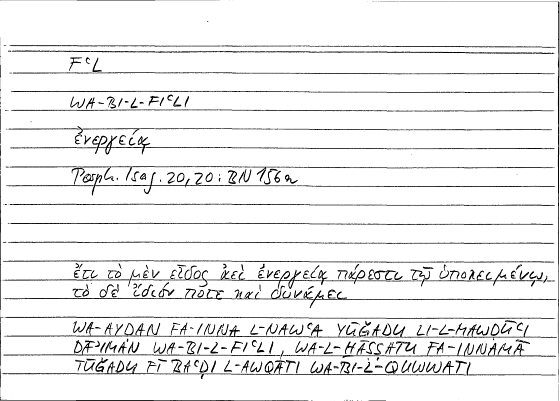 FʿL
WA-BI-L-FIʿLI
ἐνεργείᾳ
Porph. Isag. 20,20: BN 156a
ἔτι τὸ μὲν εἶδος ἀεὶ ἐνεργείᾳ πάρεστι τῷ ὑποκειμένῳ,
τὸ δὲ ἴδιόν ποτε καὶ δυνάμει
WA-AYḌAN FA-INNA L-NAWʿA YŪĞADU LI-L-MAWḌŪʿI
DĀʾIMAN WA-BI-L-FIʿLI, WA-L-ḪĀṢṢATU FA-INNAMĀ
TŪĞADU FĪ BAʿḌI L-AWQĀTI WA-BI-L-QUWWATI